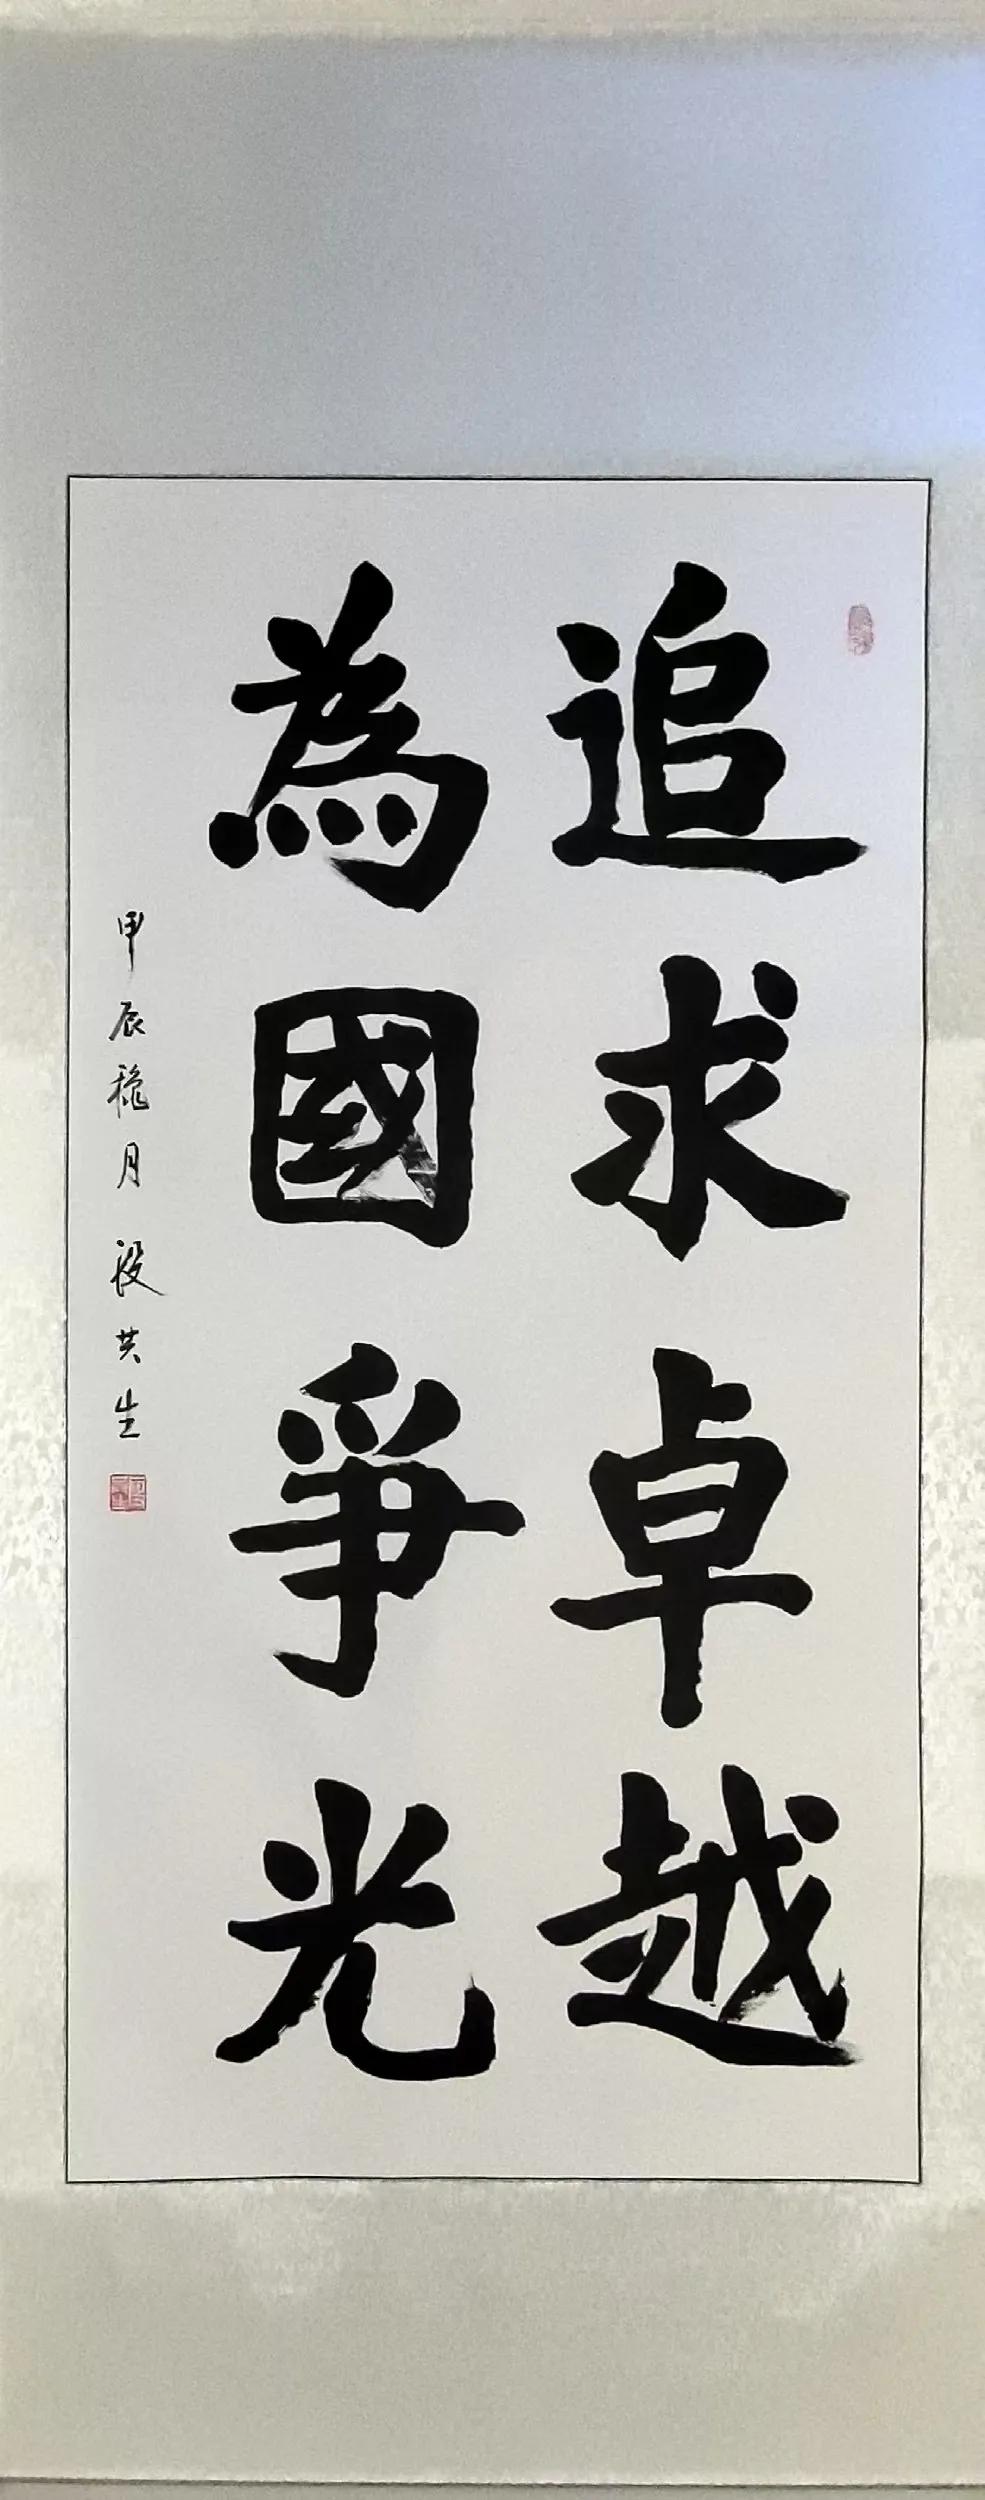 追求卓越
為國爭光
甲辰穐月 段共生